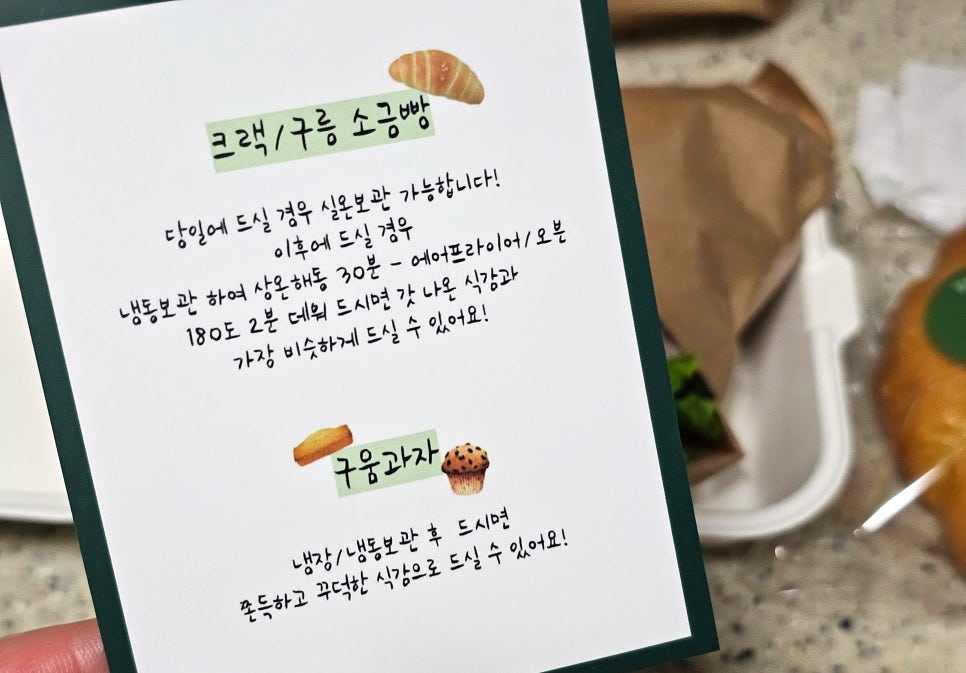 크랙/구름 소금빵
당일에 드실 경우 실온보관 가능합니다!
이후에 드실 경우
냉동보관 하여 상온해동 30분 - 에어프라이어/오븐
180도 2분 데워 드시면 갓 나온 식감과
가장 비슷하게 드실 수 있어요!
구움과자
냉장/냉동보관 후 드시면
쫀득하고 꾸덕한 식감으로 드실 수 있어요!